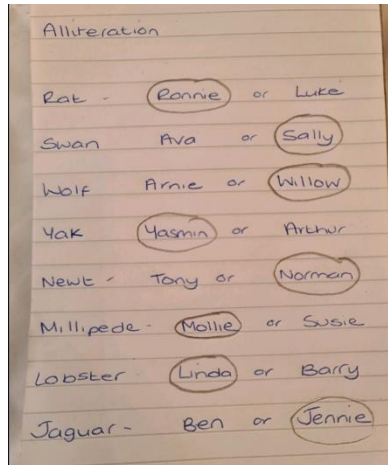 Alliteration
Rat - Ronnie or Luke
Swan Ava or Sally
Wolf Arnie or Willow
Yak Yasmin or Arthur
Newt - Tony or Norman
Millipede - Mollie or Susie
Lobster Linda or Barry
Jaguar - Ben or Jennie